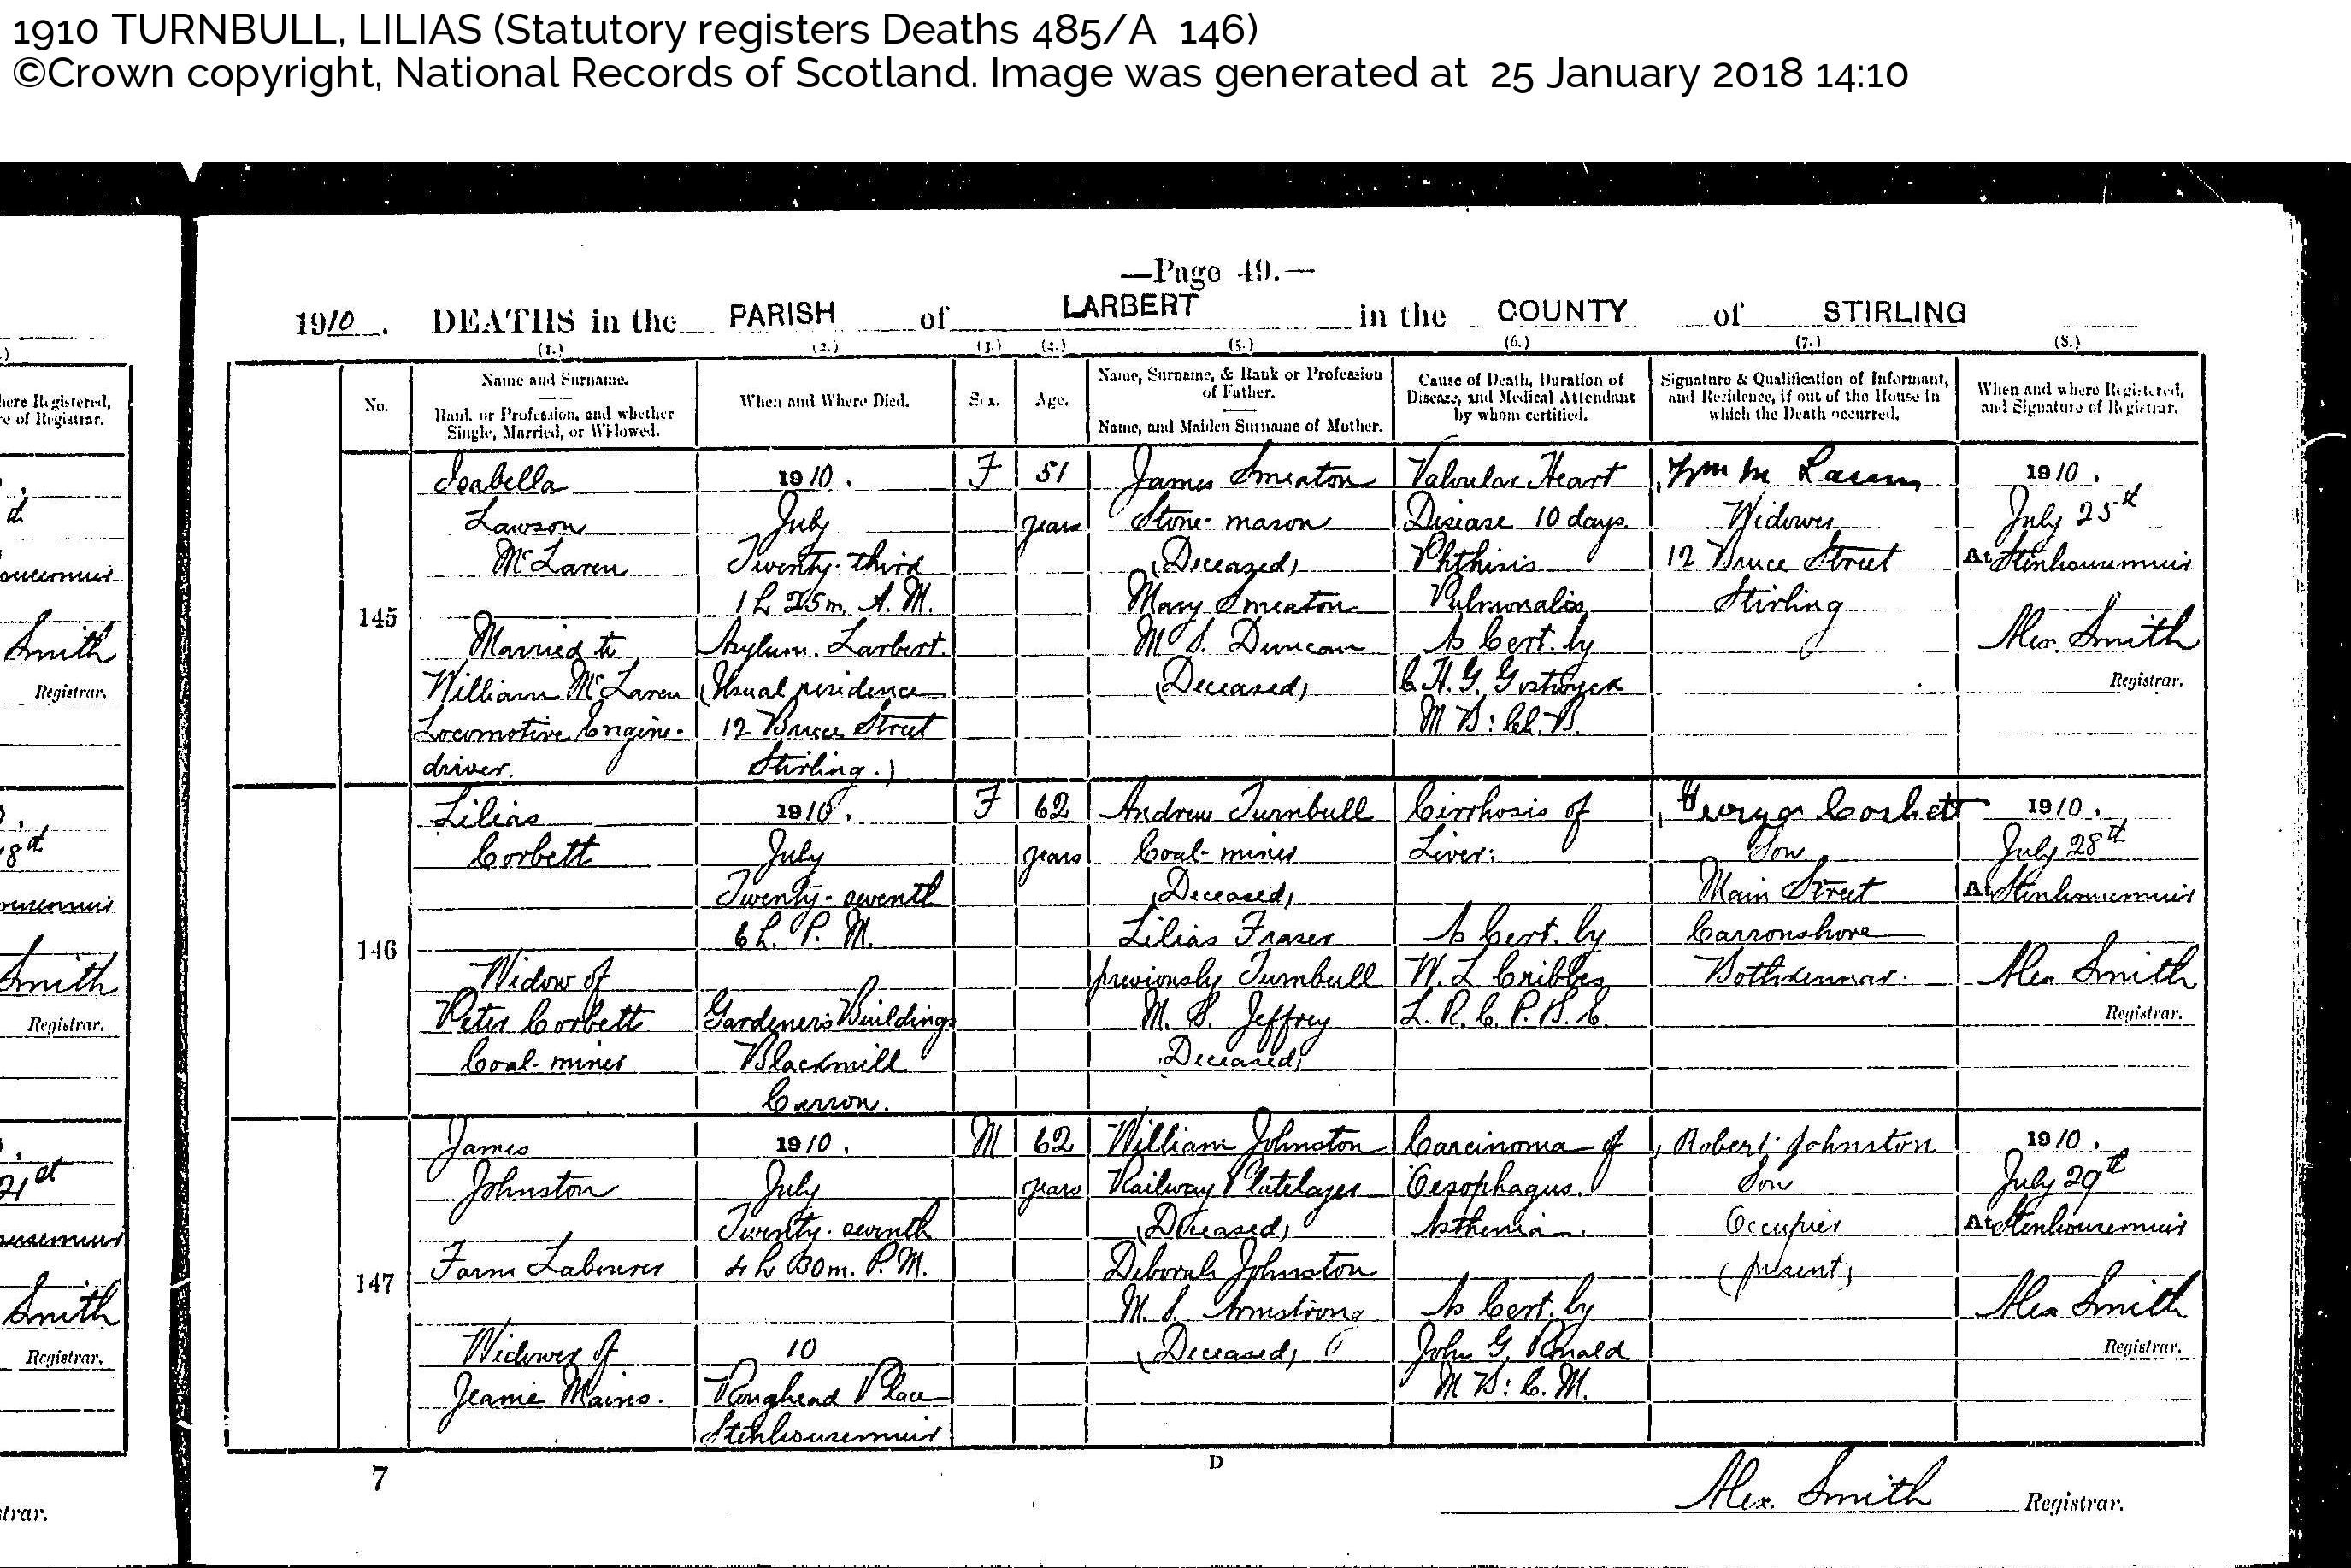 1910 TURNBULL, LILIAS (Statutory registers Deaths 485/A 146)
©Crown copyright, National Records of Scotland. Image was generated at 25 January 2018 14:10
—Page 49.—
1910. DEATHS in the PARISH of LARBERT in the COUNTY of STIRLING
(1.) (2.) (3.) (4.) (5.) (6.) (7.) (8.)
No.
Name and Surname.
Rank or Profession, and whether
Single, Married, or Widowed.
When and Where Died.
Sex.
Age.
Name, Surname, & Rank or Profession
of Father.
Name, and Maiden Surname of Mother.
Cause of Death, Duration of
Disease, and Medical Attendant
by whom certified.
Signature & Qualification of Informant,
and Residence, if out of the House in
which the Death occurred.
When and where Registered,
and Signature of Registrar.
145
Isabella
Lawson
McLaren
Married to
William McLaren
Locomotive Engine-
driver.
1910.
July
Twenty-third
1h. 25m. A.M.
Asylum. Larbert.
(Usual residence
12 Bruce Street
Stirling.)
F
51
years
James Smeaton
Stone-mason
(Deceased)
Mary Smeaton
M. S. Duncan
(Deceased)
Valvular Heart
Disease 10 days.
Phthisis
Pulmonalis
As Cert. by
C. H. G. Gostwyck
M B: Ch. B.
Wm Mc Laren
Widower
12 Bruce Street
Stirling
1910.
July 25th
At Stenhousemuir
Alex. Smith
Registrar.
146
Lilias
Corbett
Widow of
Peter Corbett
Coal-miner
1910.
July
Twenty-seventh
6h. P. M.
Gardener's Buildings
Blackmill
Carron.
F
62
years
Andrew Turnbull
Coal-miner
(Deceased)
Lilias Fraser
previously Turnbull
M. S. Jeffrey
(Deceased)
Cirrhosis of
Liver:
As Cert. by
W. L. Cribbes
L. R. C. P. S. E.
George Corbett
Son
Main Street
Carronshore
Bothkennar.
1910.
July 28th
At Stenhousemuir
Alex Smith
Registrar.
147
James
Johnston
Farm Labourer
Widower of
Jeanie Mains.
1910.
July
Twenty-seventh
4h. 30m. P.M.
10
Roughead Place
Stenhousemuir
M
62
years
William Johnston
Railway Platelayer
(Deceased)
Deborah Johnston
M. S. Armstrong
(Deceased)
Carcinoma of
Oesophagus.
Asthenia.
As Cert. by
John G. Ronald
M B: C. M.
Robert Johnston
Son
Occupier
(present)
1910.
July 29th
At Stenhousemuir
Alex Smith
Registrar.
7
D
Alex. Smith Registrar.